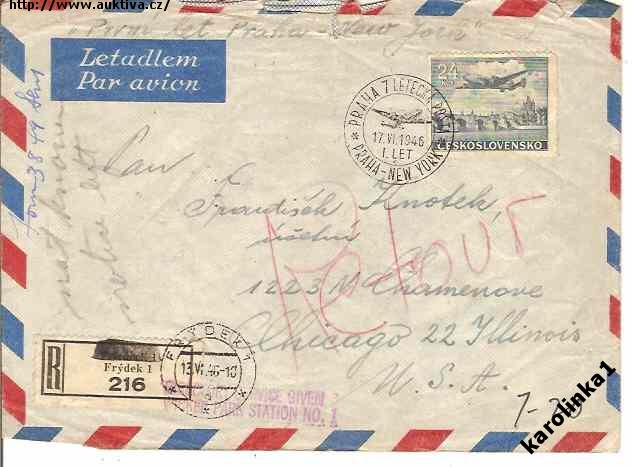 http://www.auktiva.cz/
"První let Praha - New York"
Letadlem
Par avion
24
Kčs
ČESKOSLOVENSKO
PRAHA 7 LETECKÁ POŠTA
17.VI.1946
I. LET
PRAHA-NEW YORK
Pan
František Knotek,
účetní
1223 N
Chicago 22 Illinois
U.S.A.
Retour
Form 3849
R
Frýdek 1
216
FRÝDEK 1
13.VI.46-18
a
GIVEN
PARK STATION NO. 1
7-20
karolinka1